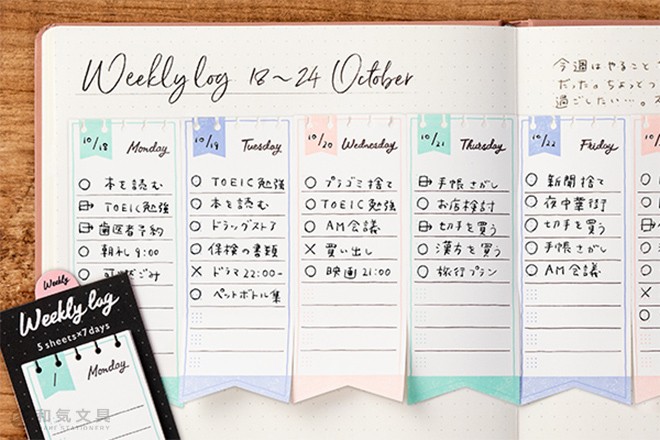 Weekly log 18~24 October
今週はやること
だった。ちょっとつ
過ごしたい…。
10/18 Monday
本を読む
TOEIC勉強
歯医者予約
朝礼 9:00
10/19 Tuesday
TOEIC勉強
本を読む
ドラッグストア
保検の書類
ドラマ 22:00~
ペットボトル集
10/20 Wednesday
プラゴミ捨て
TOEIC勉強
AM会議
買い出し
映画 21:00
10/21 Thursday
手帳さがし
お店検討
切手を買う
漢方を買う
旅行プラン
10/22 Friday
新聞捨て
夜中華街
切手を買う
手帳さがし
AM会議
Weekly
Weekly log
5 sheets×7 days
1 Monday
和気文具